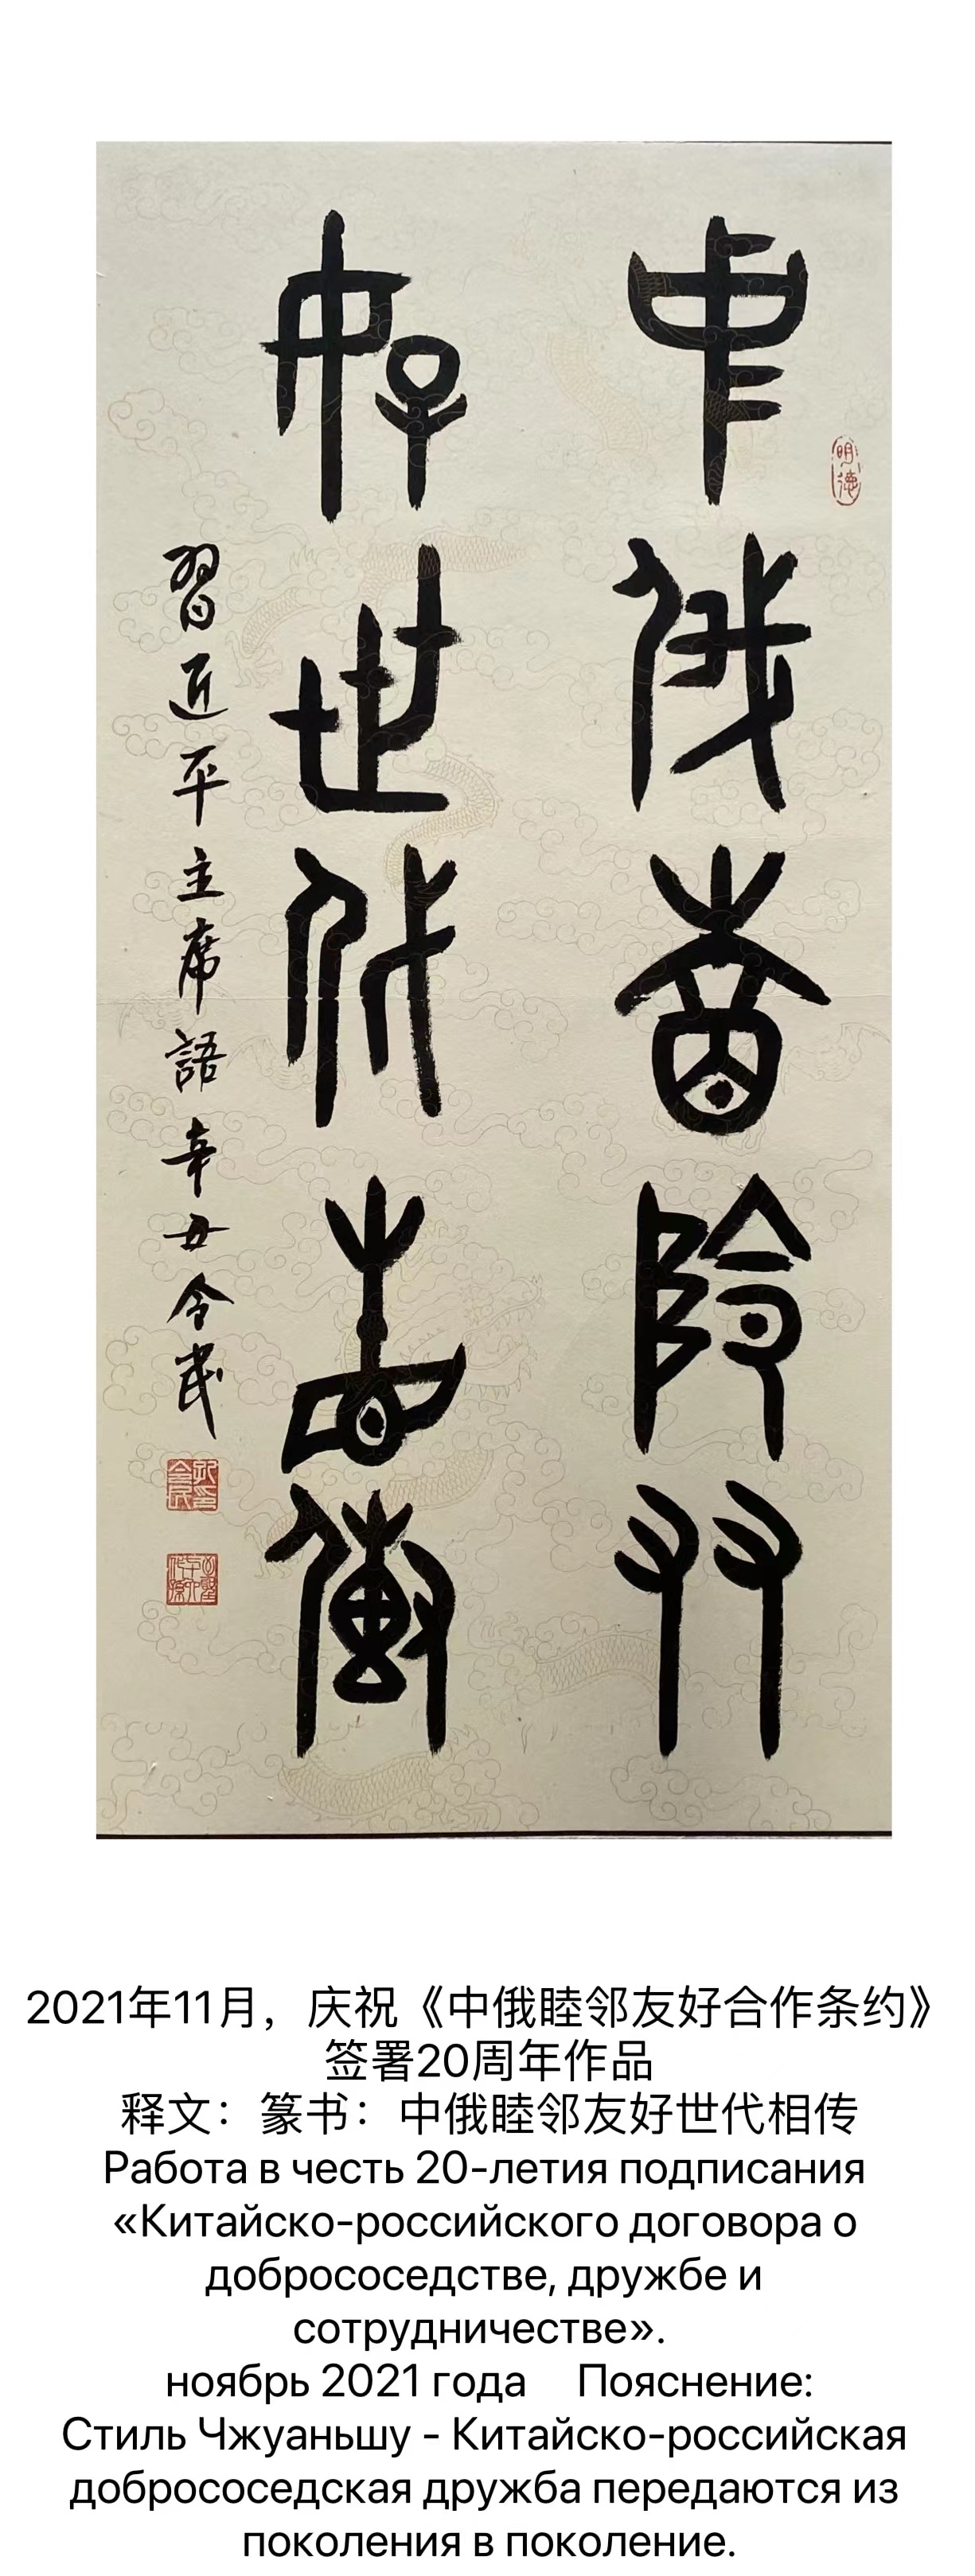 中俄睦鄰友
好世代相傳
習近平主席語 辛丑 令民
明德
2021年11月，庆祝《中俄睦邻友好合作条约》
签署20周年作品
释文：篆书：中俄睦邻友好世代相传
Работа в честь 20-летия подписания
«Китайско-российского договора о
добрососедстве, дружбе и
сотрудничестве».
ноябрь 2021 года Пояснение:
Стиль Чжуаньшу - Китайско-российская
добрососедская дружба передаются из
поколения в поколение.